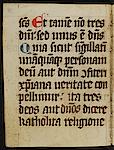 scs Et tamē nō tres
dn̄i: sed unus ē dn̄s
Quia sicut sigillatī
unāquāqȝ personam
deū aut dnm̄ xpiāna ueritate con
pellimur: ita tres
deos aut dn̄os dicere
katholica religione